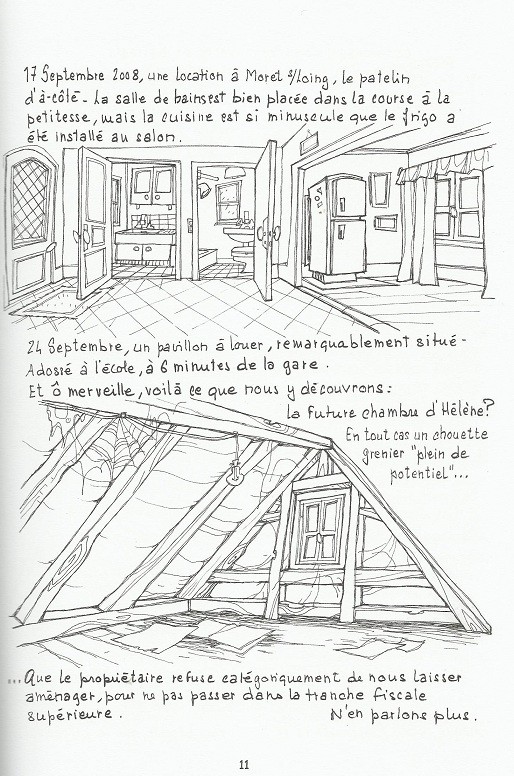 17 Septembre 2008, une location à Moret s/Loing, le patelin
d'à-côté - La salle de bains est bien placée dans la course à la
petitesse, mais la cuisine est si minuscule que le frigo a
été installé au salon.
24 Septembre, un pavillon à louer, remarquablement situé -
Adossé à l'école, à 6 minutes de la gare.
Et ô merveille, voilà ce que nous y découvrons :
La future chambre d'Hélène?
En tout cas un chouette
grenier "plein de
potentiel"...
...Que le propriétaire refuse catégoriquement de nous laisser
aménager, pour ne pas passer dans la tranche fiscale
supérieure. N'en parlons plus.
11